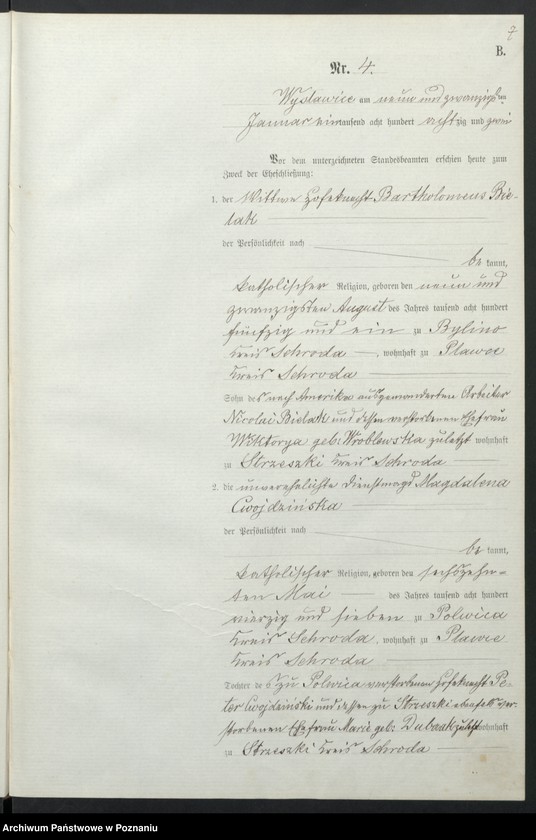 7
B.
Nr. 4.
Wysławice am neun und zwanzigsten
Januar eintausend acht hundert achtzig und zwei
Vor dem unterzeichneten Standesbeamten erschien heute zum
Zweck der Eheschließung:
1. der Wittwer Hofeknecht Bartholomeus Bie-
lak
der Persönlichkeit nach
be kannt,
katholischer Religion, geboren den neun und
zwanzigsten August des Jahres tausend acht hundert
fünfzig und ein zu Bylino
Kreis Schroda, wohnhaft zu Plawce
Kreis Schroda
Sohn des nach Amerika ausgewanderten Arbeiter
Nicolai Bielak und dessen verstorbenen Ehefrau
Wiktorya geb: Wroblewska zuletzt wohnhaft
zu Strzeszki Kreis Schroda
2. die unverehelichte Dienstmagd Magdalena
Cwojdzińska
der Persönlichkeit nach
be kannt,
katholischer Religion, geboren den sechszehn-
ten Mai des Jahres tausend acht hundert
vierzig und sieben zu Polwica
Kreis Schroda, wohnhaft zu Plawce
Kreis Schroda
Tochter des zu Polwica verstorbenen Hofeknecht Pe-
ter Cwojdziński und dessen zu Strzeszki ebenfalls ver-
storbenen Ehefrau Marie geb: zuletzt wohnhaft
zu Strzeszki Kreis Schroda
Archiwum Państwowe w Poznaniu